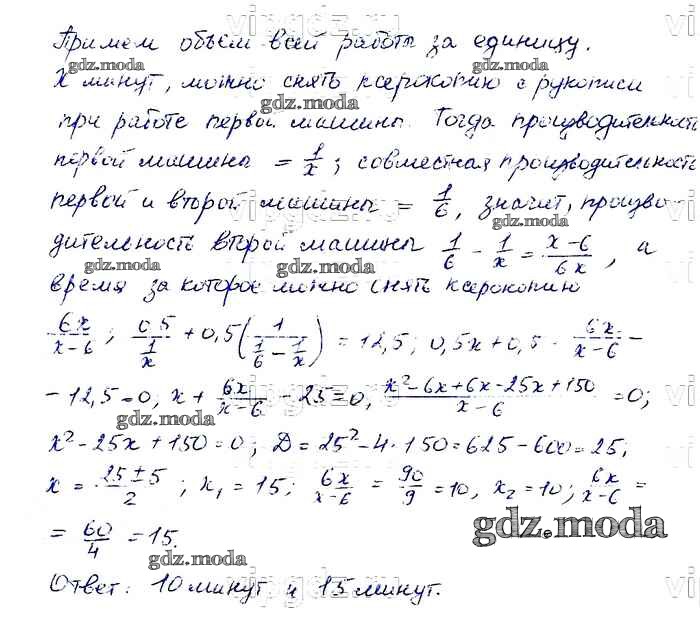 Примем объем всей работы за единицу.
x минут, можно снять ксерокопию с рукописи
при работе первой машины. Тогда производительность
первой машины = 1/x; совместная производительность
первой и второй машины = 1/6, значит, произво-
дительность второй машины 1/6 - 1/x = (x-6)/(6x), а
время за которое можно снять ксерокопию
6x/(x-6); 0,5/(1/x) + 0,5(1/(1/6 - 1/x)) = 12,5; 0,5x + 0,5 · 6x/(x-6) -
- 12,5 = 0, x + 6x/(x-6) - 25 = 0, (x² - 6x + 6x - 25x + 150)/(x-6) = 0;
x² - 25x + 150 = 0; D = 25² - 4 · 150 = 625 - 600 = 25;
x = (25 ± 5)/2; x₁ = 15; 6x/(x-6) = 90/9 = 10, x₂ = 10; 6x/(x-6) =
= 60/4 = 15.
Ответ: 10 минут и 15 минут.
gdz.moda
gdz.moda
gdz.moda
gdz.moda
gdz.moda
gdz.moda
gdz.moda
gdz.moda
gdz.moda
gdz.moda
vipgdz.ru
vipgdz.ru
vipgdz.ru